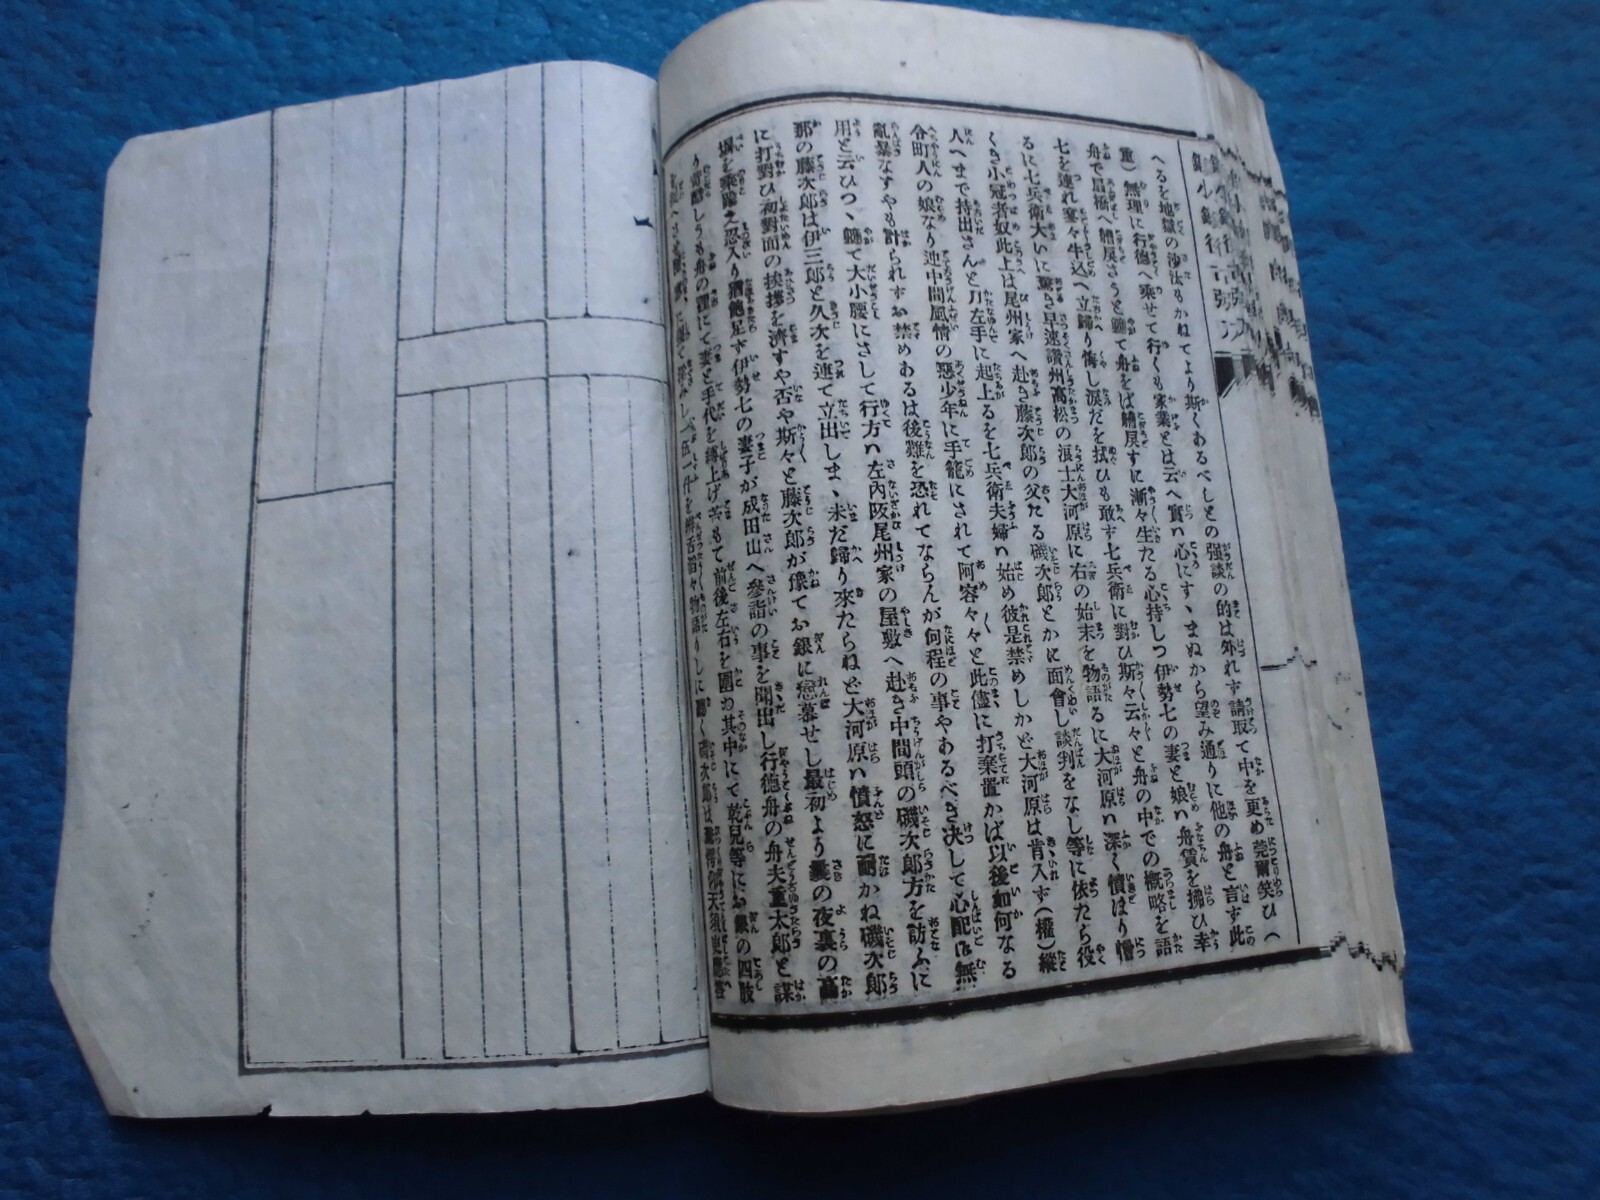 へるを地獄の沙汰もかねてより斯くあるべしとの强談の的は外れす請取て中を更め莞爾笑ひ(
重)無理に行德へ乘せて行くも家業とは云へ實ハ心にすゝまぬから望み通りに他の舟と言ず此
舟で扇橋へ艣戾さうと軈て舟をば艣戾すに漸々生たる心持しつ伊勢七の妻と娘ハ舟賃を拂ひ幸
七を連れ牛込へ立歸り悔し淚だを拭ひも敢す七兵衛に對ひ斯々云々と舟の中での槪略を語
るに七兵衛大いに驚き早速讃州高松の浪士大河原に右の始末を物語るに大河原ハ深く憤ほり憎
くき小冠者奴此上は尾州家へ赴き藤次郎の父たる磯次郎とかに面會し談判をなし等に依たら役
人へまで持出さんと刀左手に起上るを七兵衛夫婦ハ始め彼是禁めしかど大河原は肯入ず(權)縱
令町人の娘なり迚中間風情の惡少年に手籠にされて阿容々々と此儘に打棄置かば以後如何なる
亂暴なすやも計られずお禁めあるは後難を恐れてならんが何程の事やあるべき决して心配は無
用と云ひつゝ軈て大小腰にさして行方ハ左內阪尾州家の屋敷へ赴き中間頭の磯次郎方を訪ふに
那の藤次郎は伊三郎と久次を連て立出しまゝ未だ歸り來たらねど大河原ハ憤怒に耐かね磯次郎
に打對ひ初對面の挨拶を濟すや否や斯々と藤次郎が豫てお銀に戀慕せし最初より裏の夜裏の高
塀を乘踰え忍入り猶飽足ず伊勢七の妻子が成田山へ參詣の事を聞出し行德舟の舟夫重太郎と謀
り舟の裡にて妻と手代を縛上げ前後左右を圍み其中にて乾兒等にお銀の四肢